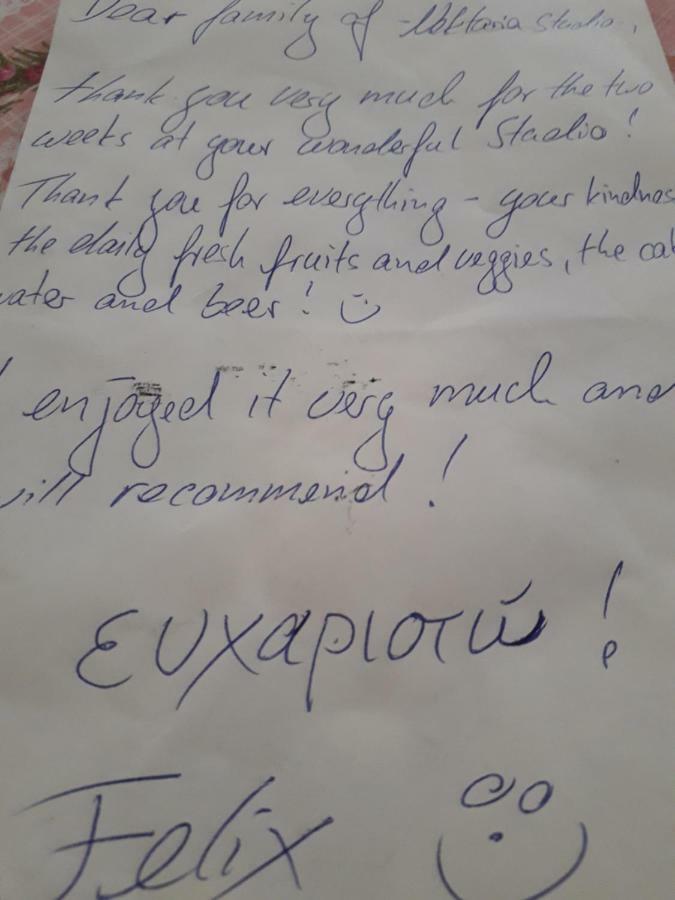 Dear family of Studio,
thank you very much for the two
weeks at your wonderful Studio!
Thank you for everything - your kindnes
the daily fresh fruits and veggies, the
water and beer!
enjoyed it very much and
will recommend!
ευχαριστώ!
Felix